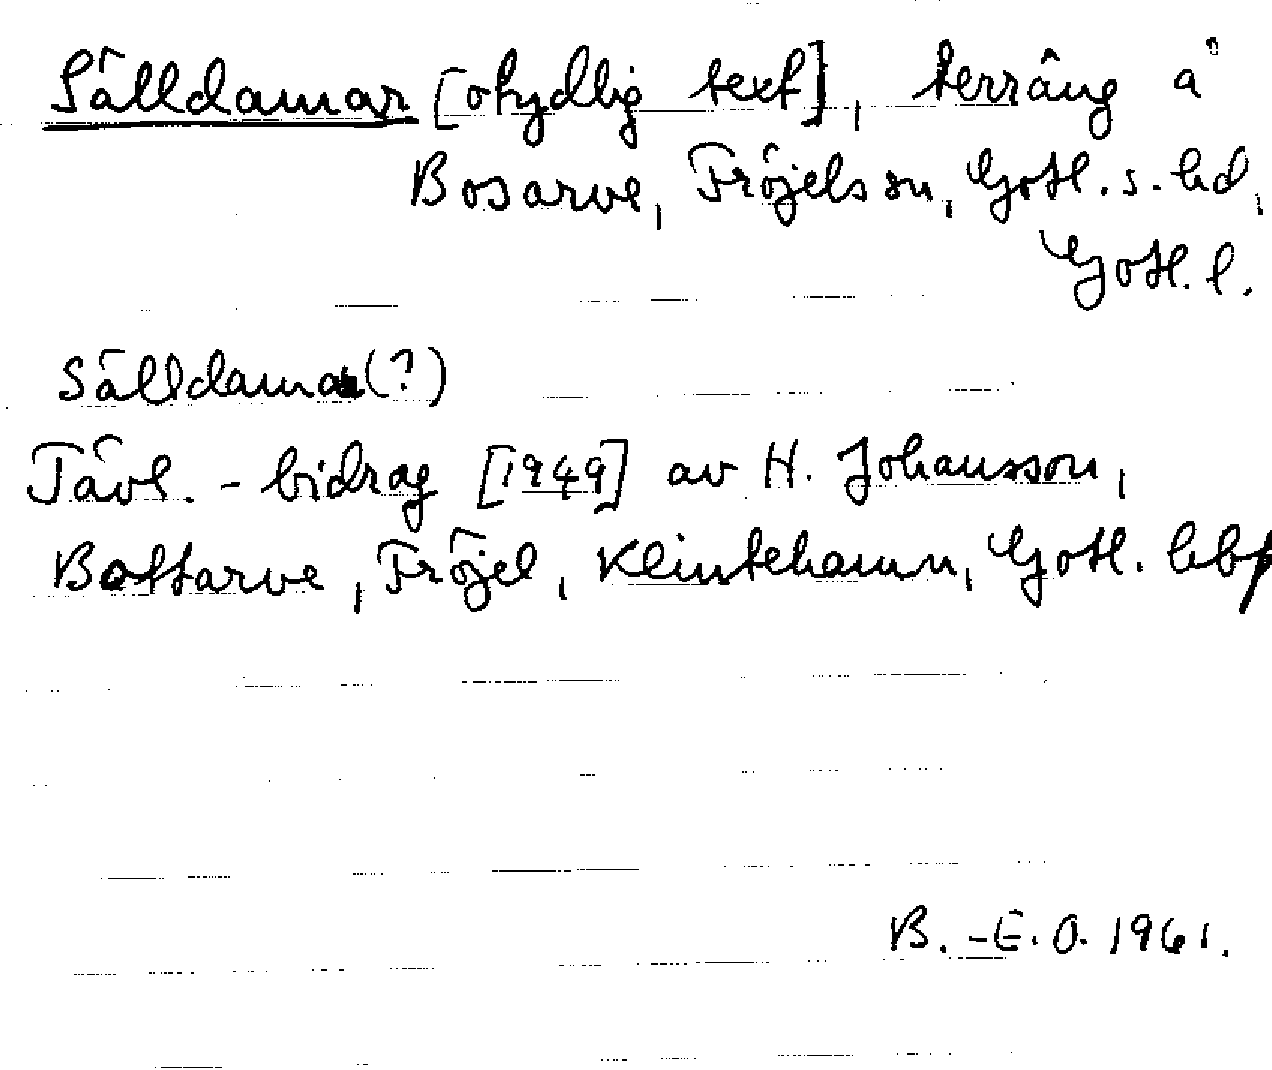 Sälldamar [otydlig text], terräng å
Bosarve, Fröjels sn, Gotl. s. hd,
Gotl. l.
Sälldama(?)
Tävl.-bidrag [1949] av H. Johansson,
Bottarve, Fröjel, Klintehamn, Gotl. hbf
B.-E. O. 1961.